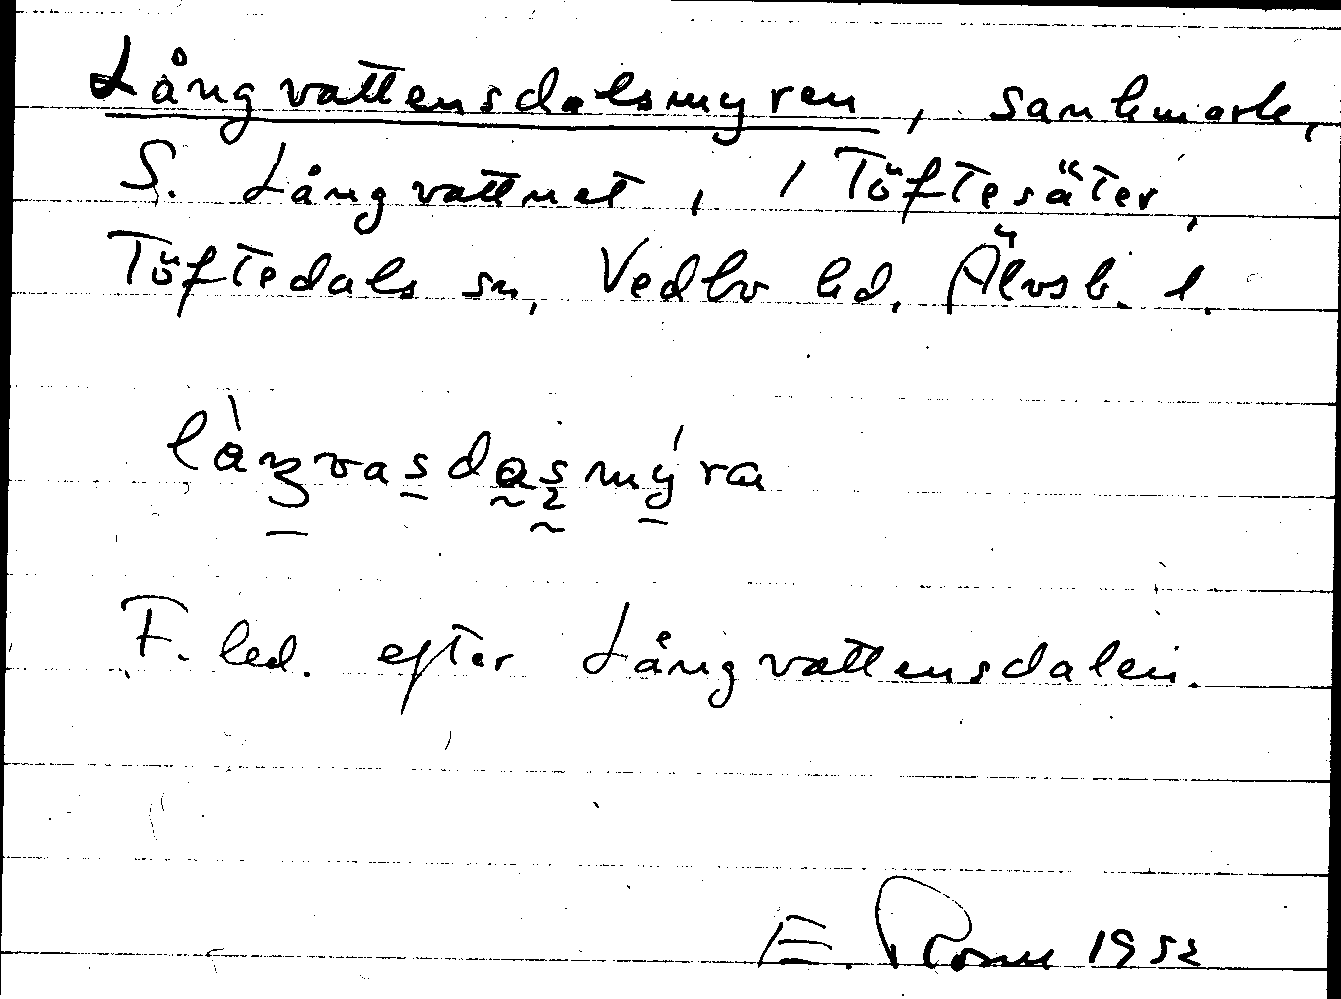 Långvattensdalsmyren, sankmark,
S. Långvattnet, 1 Töftesäter,
Töftedals sn, Vedbo hd. Älvsb. l.
F. led. efter Långvattensdalen.
E. 1952